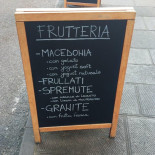 FRUTTERIA
- MACEDONIA
- con gelato
- con yogurt
- con yogurt naturale
- FRULLATI
- SPREMUTE
- GRANITE
- con frutta fresca